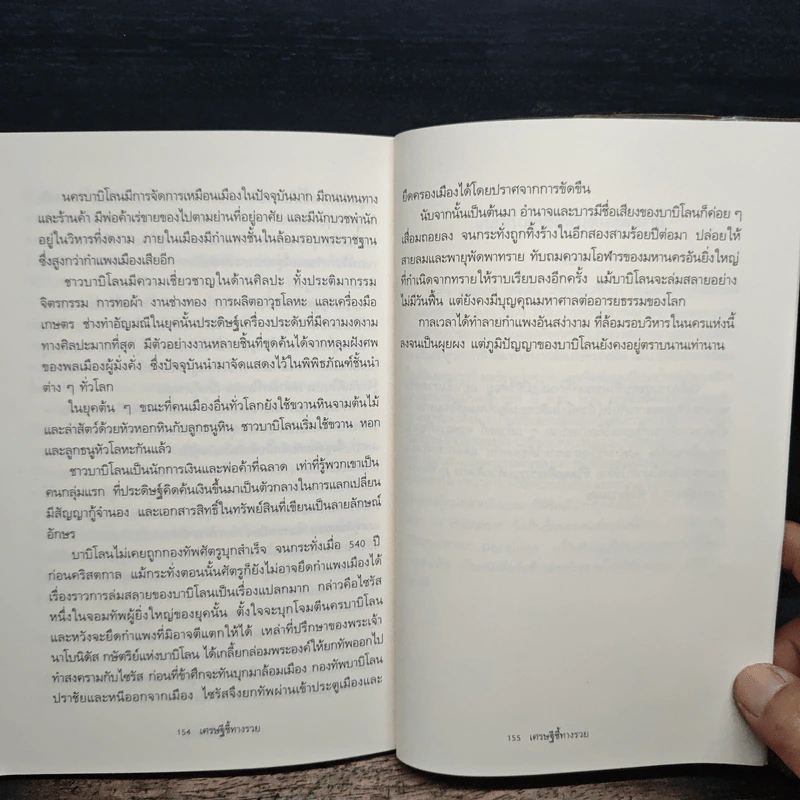 นครบาบิโลนมีการจัดการเหมือนเมืองในปัจจุบันมาก มีถนนหนทาง
และร้านค้า มีพ่อค้าเร่ขายของไปตามย่านที่อยู่อาศัย และมีนักบวชพำนัก
อยู่ในวิหารที่งดงาม ภายในเมืองมีกำแพงชั้นในล้อมรอบพระราชฐาน
ซึ่งสูงกว่ากำแพงเมืองเสียอีก
ชาวบาบิโลนมีความเชี่ยวชาญในด้านศิลปะ ทั้งประติมากรรม
จิตรกรรม การทอผ้า งานช่างทอง การผลิตอาวุธโลหะ และเครื่องมือ
เกษตร ช่างทำอัญมณีในยุคนั้นประดิษฐ์เครื่องประดับที่มีความงดงาม
ทางศิลปะมากที่สุด มีตัวอย่างงานหลายชิ้นที่ขุดค้นได้จากหลุมฝังศพ
ของพลเมืองผู้มั่งคั่ง ซึ่งปัจจุบันนำมาจัดแสดงไว้ในพิพิธภัณฑ์ชั้นนำ
ต่าง ๆ ทั่วโลก
ในยุคต้น ๆ ขณะที่คนเมืองอื่นทั่วโลกยังใช้ขวานหินจามต้นไม้
และล่าสัตว์ด้วยหัวหอกหินกับลูกธนูหิน ชาวบาบิโลนเริ่มใช้ขวาน หอก
และลูกธนูหัวโลหะกันแล้ว
ชาวบาบิโลนเป็นนักการเงินและพ่อค้าที่ฉลาด เท่าที่รู้พวกเขาเป็น
คนกลุ่มแรก ที่ประดิษฐ์คิดค้นเงินขึ้นมาเป็นตัวกลางในการแลกเปลี่ยน
มีสัญญากู้จำนอง และเอกสารสิทธิ์ในทรัพย์สินที่เขียนเป็นลายลักษณ์
อักษร
บาบิโลนไม่เคยถูกกองทัพศัตรูบุกสำเร็จ จนกระทั่งเมื่อ 540 ปี
ก่อนคริสตกาล แม้กระทั่งตอนนั้นศัตรูก็ยังไม่อาจยึดกำแพงเมืองได้
เรื่องราวการล่มสลายของบาบิโลนเป็นเรื่องแปลกมาก กล่าวคือไซรัส
หนึ่งในจอมทัพผู้ยิ่งใหญ่ของยุคนั้น ตั้งใจจะบุกโจมตีนครบาบิโลน
และหวังจะยึดกำแพงที่มิอาจตีแตกให้ได้ เหล่าที่ปรึกษาของพระเจ้า
นาโบนิดัส กษัตริย์แห่งบาบิโลน ได้เกลี้ยกล่อมพระองค์ให้ยกทัพออกไป
ทำสงครามกับไซรัส ก่อนที่ข้าศึกจะทันบุกมาล้อมเมือง กองทัพบาบิโลน
ปราชัยและหนีออกจากเมือง ไซรัสจึงยกทัพผ่านเข้าประตูเมืองและ
154 เศรษฐีชี้ทางรวย
ยึดครองเมืองได้โดยปราศจากการขัดขืน
นับจากนั้นเป็นต้นมา อำนาจและบารมีชื่อเสียงของบาบิโลนก็ค่อย ๆ
เสื่อมถอยลง จนกระทั่งถูกทิ้งร้างในอีกสองสามร้อยปีต่อมา ปล่อยให้
สายลมและพายุพัดพาทราย ทับถมความโอฬารของมหานครอันยิ่งใหญ่
ที่กำเนิดจากทรายให้ราบเรียบลงอีกครั้ง แม้บาบิโลนจะล่มสลายอย่าง
ไม่มีวันฟื้น แต่ยังคงมีบุญคุณมหาศาลต่ออารยธรรมของโลก
กาลเวลาได้ทำลายกำแพงอันสง่างาม ที่ล้อมรอบวิหารในนครแห่งนี้
ลงจนเป็นผุยผง แต่ภูมิปัญญาของบาบิโลนยังคงอยู่ตราบนานเท่านาน
155 เศรษฐีชี้ทางรวย